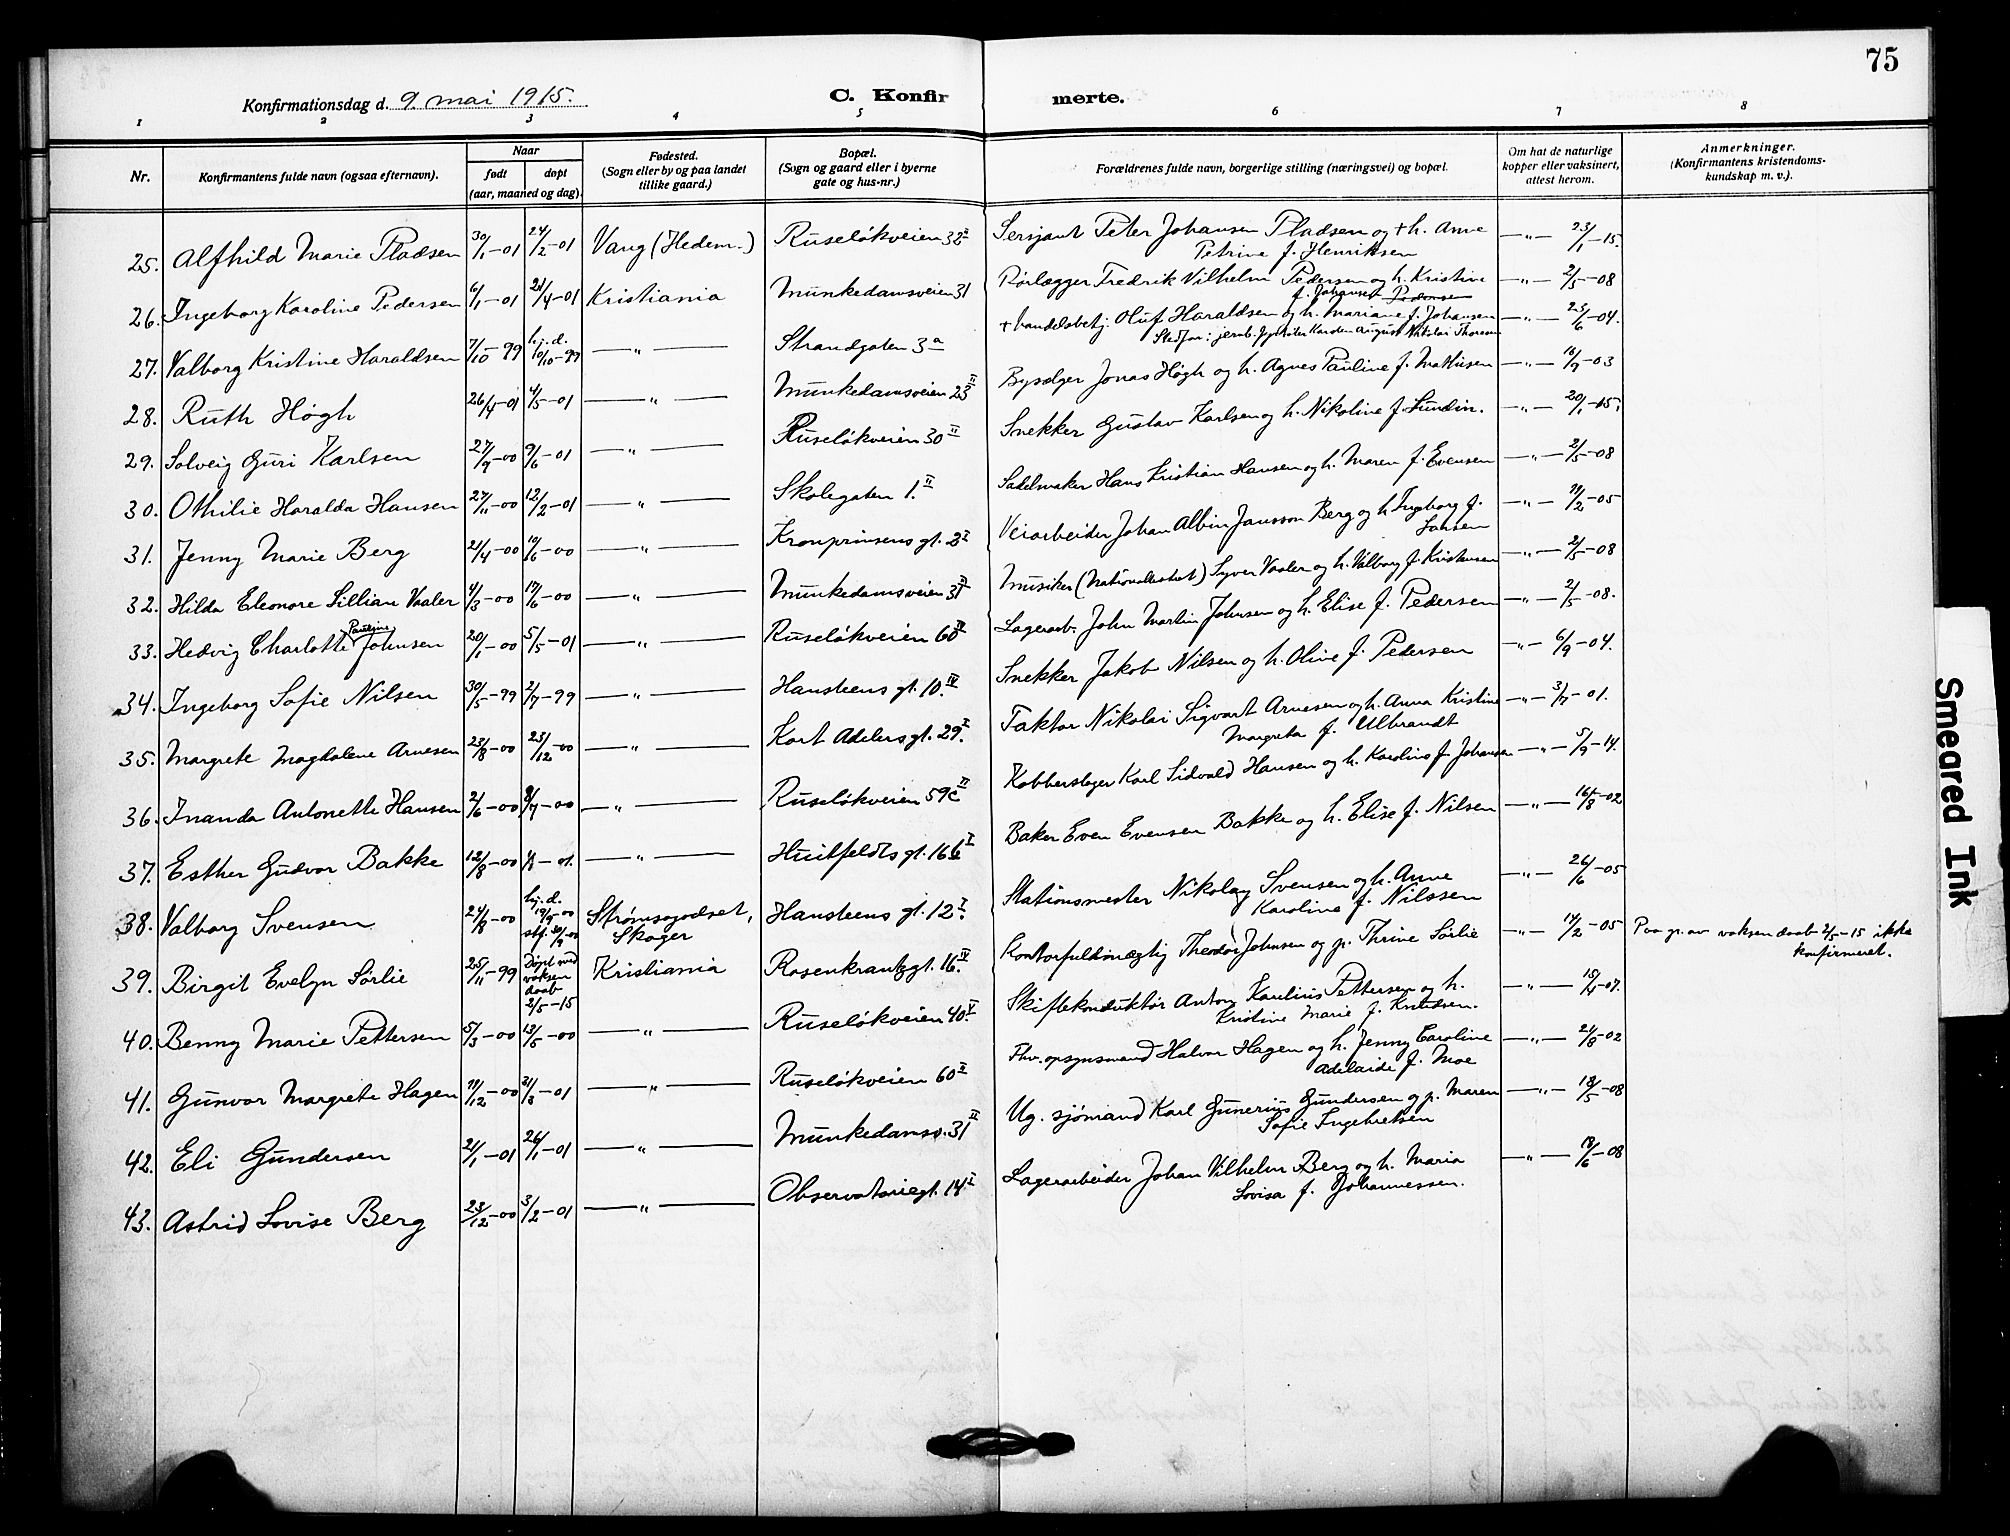 75
Konfirmationsdag d. 9 mai 1915.
C. Konfirmerte.
1 2 3 4 5 6 7 8
Nr.
Konfirmantens fulde navn (ogsaa efternavn).
Naar
født døpt
(aar, maaned og dag).
Fødested.
(Sogn eller by og paa landet
tillike gaard.)
Bopæl.
(Sogn og gaard eller i byerne
gate og hus-nr.)
Forældrenes fulde navn, borgerlige stilling (næringsvei) og bopæl.
Om hat de naturlige
kopper eller vaksinert,
attest herom.
Anmerkninger.
(Konfirmantens kristendoms-
kundskap m. v.).
25. Alfhild Marie Pladsen 30/1-01 24/2-01 Vang (Hedem.) Ruseløkveien 32 II Sersjant Peter Johansen Pladsen og + h. Anne
Petrine f. Henriksen -"- 23/1-15.
26. Ingeborg Karoline Pedersen 6/1-01 21/4-01 Kristiania Munkedamsveien 31 Rørlægger Fredrik Vilhelm Pedersen og h. Kristine
f. Johansen Pedersen -"- 2/5-08
27. Valborg Kristine Haraldsen 7/10-99 hj.d.
10/10-99 -"- Strandgaten 3a + handelsbetj. Oluf Haraldsen og h. Mariane f. Johansen
Stedfar: jernb. August Nikolai -"- 23/6-04.
28. Ruth Høgh 26/4-01 4/5-01 -"- Munkedamsveien 23 III Bysælger Jonas Høgh og h. Agnes Pauline f. Mathisen -"- 16/9-03
29. Solveig Guri Karlsen 27/9-00 9/6-01 -"- Ruseløkveien 30 II Snekker Gustav Karlsen og h. Nikoline f. Lundin. -"- 20/1-15.
30. Othilie Haralda Hansen 27/11-00 12/2-01 -"- Skolegaten 1. II Sadelmaker Hans Kristian Hansen og h. Maren f. Evensen -"- 2/5-08
31. Jenny Marie Berg 21/4-00 10/6-00 -"- Kronprinsens gt. 2 I Veiarbeider Johan Albin Jansson Berg og h. Ingeborg f.
Larsen -"- 11/2-05
32. Hilda Eleonore Lillian Vaaler 4/3-00 17/6-00 -"- Munkedamsveien 31 II Musiker (Nationalteatret) Syver Vaaler og h. Valborg f. Kristensen -"- 2/5-08
33. Hedvig Charlotte Pauline Johnsen 20/1-00 5/5-01 -"- Ruseløkveien 60 IV Lagerarb. John Martin Johnsen og h. Elise f. Pedersen -"- 2/5-08.
34. Ingeborg Sofie Nilsen 30/5-99 2/7-99 -"- Hansteens gt. 10. IV Snekker Jakob Nilsen og h. Oline f. Pedersen -"- 6/9-04.
35. Margrete Magdalene Arnesen 23/8-00 23/12-00 -"- Kort Adelers gt. 29. I Faktor Nikolai Sigvart Arnesen og h. Anna Kristine
Margreta f. Ulbrandt -"- 3/7-01.
36. Inanda Antonette Hansen 2/6-00 8/7-00 -"- Ruseløkveien 59c II Kobberslager Karl Sidvald Hansen og h. Karoline f. Johansen -"- 5/9-14.
37. Esther Gudvor Bakke 12/8-00 -01. -"- Huitfeldts gt. 16b I Baker Even Evensen Bakke og h. Elise f. Nilsen -"- 16/8-02
38. Valborg Svensen 24/8-00 hj.d.
19/9-00
stf. 30/9-00 Strømsgodset,
Skoger Hansteens gt. 12 I. Stationsmester Nikolay Svensen og h. Anne
Karoline f. Nilssen -"- 26/6-05
39. Birgit Evelyn Sørlie 25/11-99 Døpt med
voksen
daab
2/5-15 Kristiania Rosenkrantzgt. 16. IV Kontorfuldmægtig Theodor Johnsen og p. Thrine Sørlie -"- 14/2-05 Paa gr. av voksen daab 2/5-15 ikke
konfirmeret.
40. Benny Marie Pettersen 5/3-00 13/5-00 -"- Ruseløkveien 40. V Skiftekonduktør Anton Karelius Pettersen og h.
Kristine Marie f. Knudsen. -"- 15/4-07.
41. Gunvor Margrete Hagen 11/12-00 31/3-01 -"- Ruseløkveien 60 II Fhv. opsynsmand Halvor Hagen og h. Jenny Caroline
Adelaide f. Moe -"- 21/8-02
42. Eli Gundersen 21/1-01 26/1-01 -"- Munkedamsv. 31 II Ug. sjømand Karl Gunerius Gundersen og p. Maren
Sofie Ingebretsen -"- 18/5-08
43. Astrid Lovise Berg 23/12-00 3/2-01 -"- Observatoriegt. 14 I Lagerarbeider Johan Vilhelm Berg og h. Maria
Lovisa f. Johannessen. -"- 18/6-08
Smeared Ink